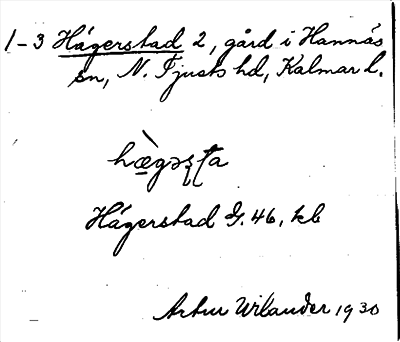 1-3 Hägerstad 2, gård i Hannäs
sn, N. Tjusts hd, Kalmar l.
hæ̀gəʂʈa
Hägerstad G. 46, kb
Artur Wilander 1930